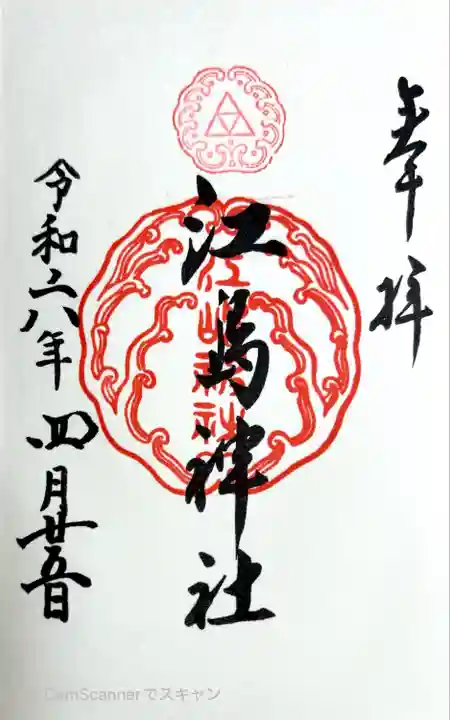 奉拝
江島神社
令和六年四月廿五日
CamScannerでスキャン